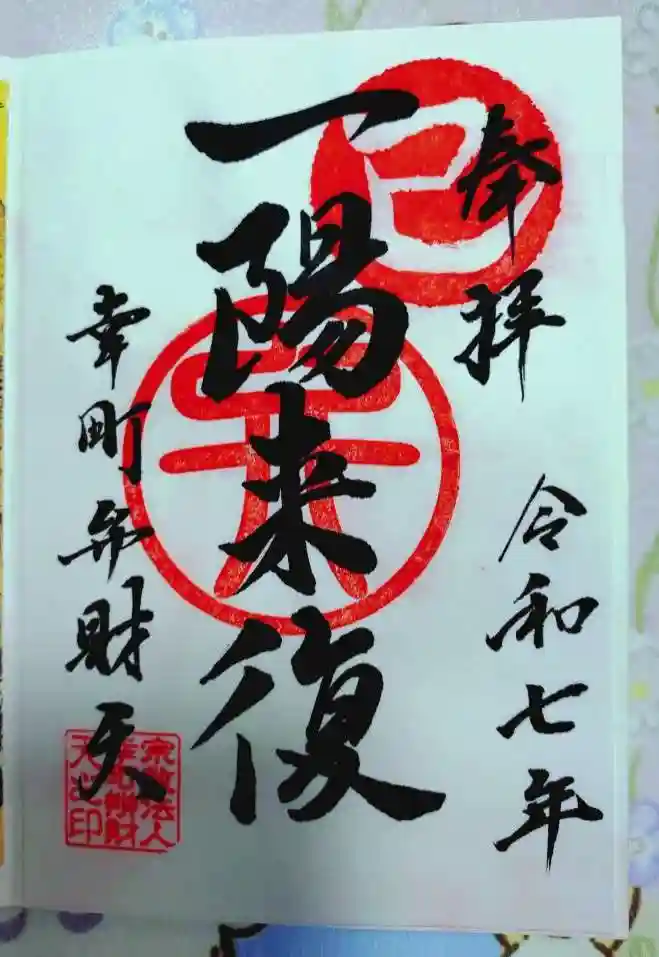 奉拝
令和七年
巳
一陽来復
幸町弁財天
宗教法人
幸町辨財
天之印